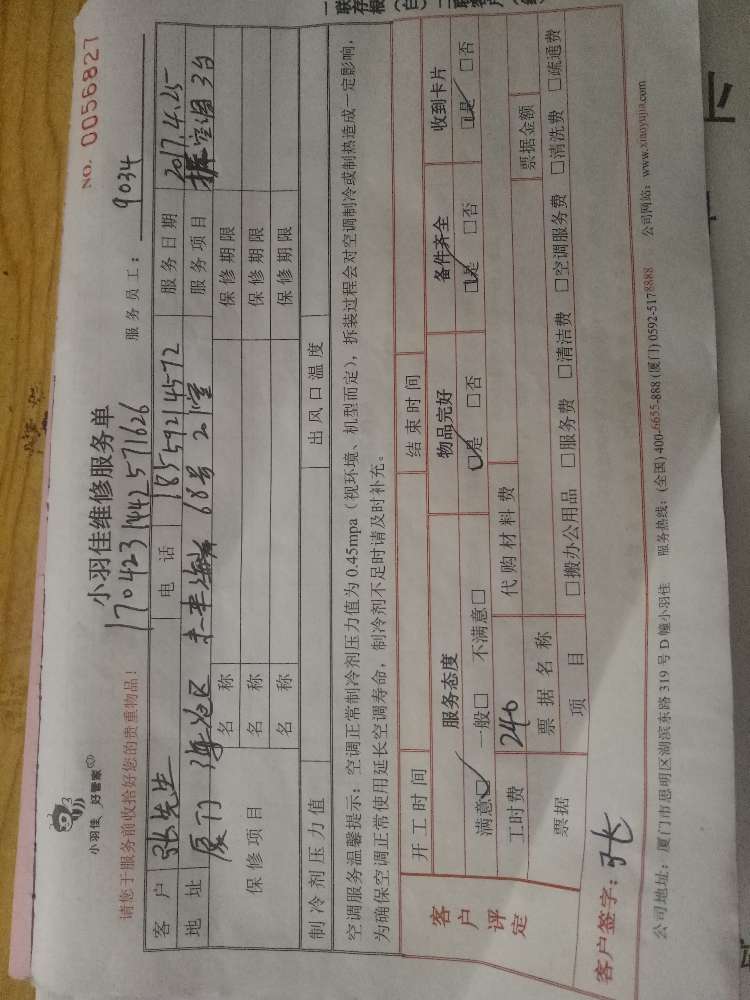 小羽佳 好管家
小羽佳维修服务单
NO. 0056827
170423144257 1626
请您于服务前收拾好您的贵重物品!
服务员工: 9034
客户 张先生 电话 18559214572 服务日期 2017.4.25
地址 厦门 海沧区 未来海岸 68号 服务项目 拆空调 3台
保修项目 名称 保修期限
名称 保修期限
名称 保修期限
制冷剂压力值 出风口温度
空调服务温馨提示:空调正常制冷剂压力值为 0.45mpa(视环境、机型而定),拆装过程会对空调制冷或制热造成一定影响,
为确保空调正常使用延长空调寿命,制冷剂不足时请及时补充。
客户评定
开工时间 结束时间
服务态度 物品完好 备件齐全 收到卡片
满意☑ 一般□ 不满意□ ☑是 □否 ☑是 □否 ☑是 □否
工时费 240 代购材料费
票据 票据名称 票据金额
项目 □搬办公用品 □服务费 □清洁费 □空调服务费 □清洗费 □疏通费
客户签字: 张
公司地址:厦门市思明区湖滨东路 319 号 D 幢小羽佳 服务热线:(全国) 400-6655-888 (厦门) 0592-5178888 公司网站:www.xiaoyujia.com